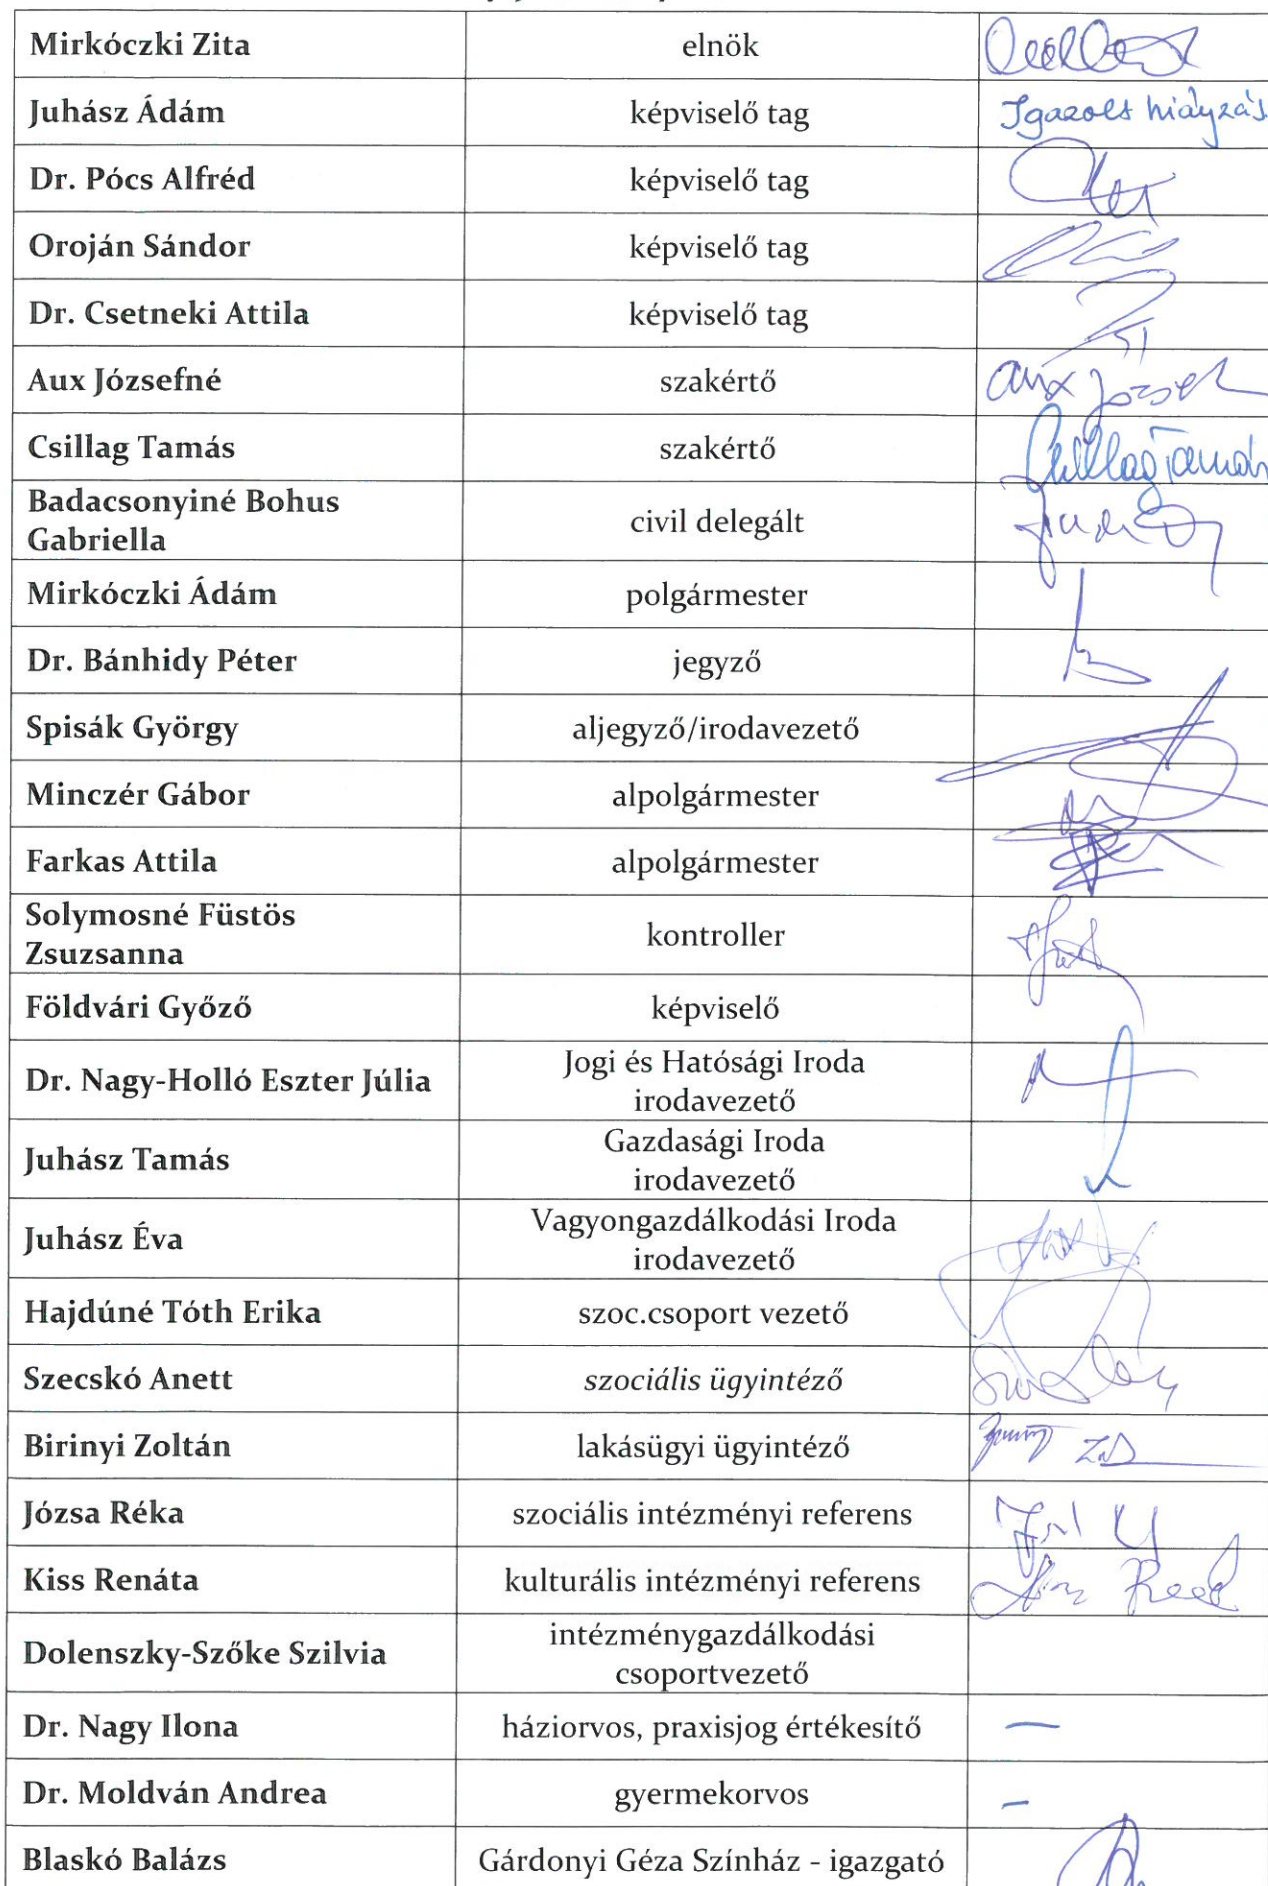 Mirkóczki Zita elnök
Juhász Ádám képviselő tag Igazolt hiányzás
Dr. Pócs Alfréd képviselő tag
Oroján Sándor képviselő tag
Dr. Csetneki Attila képviselő tag
Aux Józsefné szakértő Aux József
Csillag Tamás szakértő Csillag Tamás
Badacsonyiné Bohus
Gabriella
civil delegált
Mirkóczki Ádám polgármester
Dr. Bánhidy Péter jegyző
Spisák György aljegyző/irodavezető
Minczér Gábor alpolgármester
Farkas Attila alpolgármester
Solymosné Füstös
Zsuzsanna
kontroller
Földvári Győző képviselő
Dr. Nagy-Holló Eszter Júlia
Jogi és Hatósági Iroda
irodavezető
Juhász Tamás
Gazdasági Iroda
irodavezető
Juhász Éva
Vagyongazdálkodási Iroda
irodavezető
Hajdúné Tóth Erika szoc.csoport vezető
Szecskó Anett szociális ügyintéző
Birinyi Zoltán lakásügyi ügyintéző
Józsa Réka szociális intézményi referens
Kiss Renáta kulturális intézményi referens
Dolenszky-Szőke Szilvia
intézménygazdálkodási
csoportvezető
Dr. Nagy Ilona háziorvos, praxisjog értékesítő –
Dr. Moldván Andrea gyermekorvos –
Blaskó Balázs Gárdonyi Géza Színház - igazgató